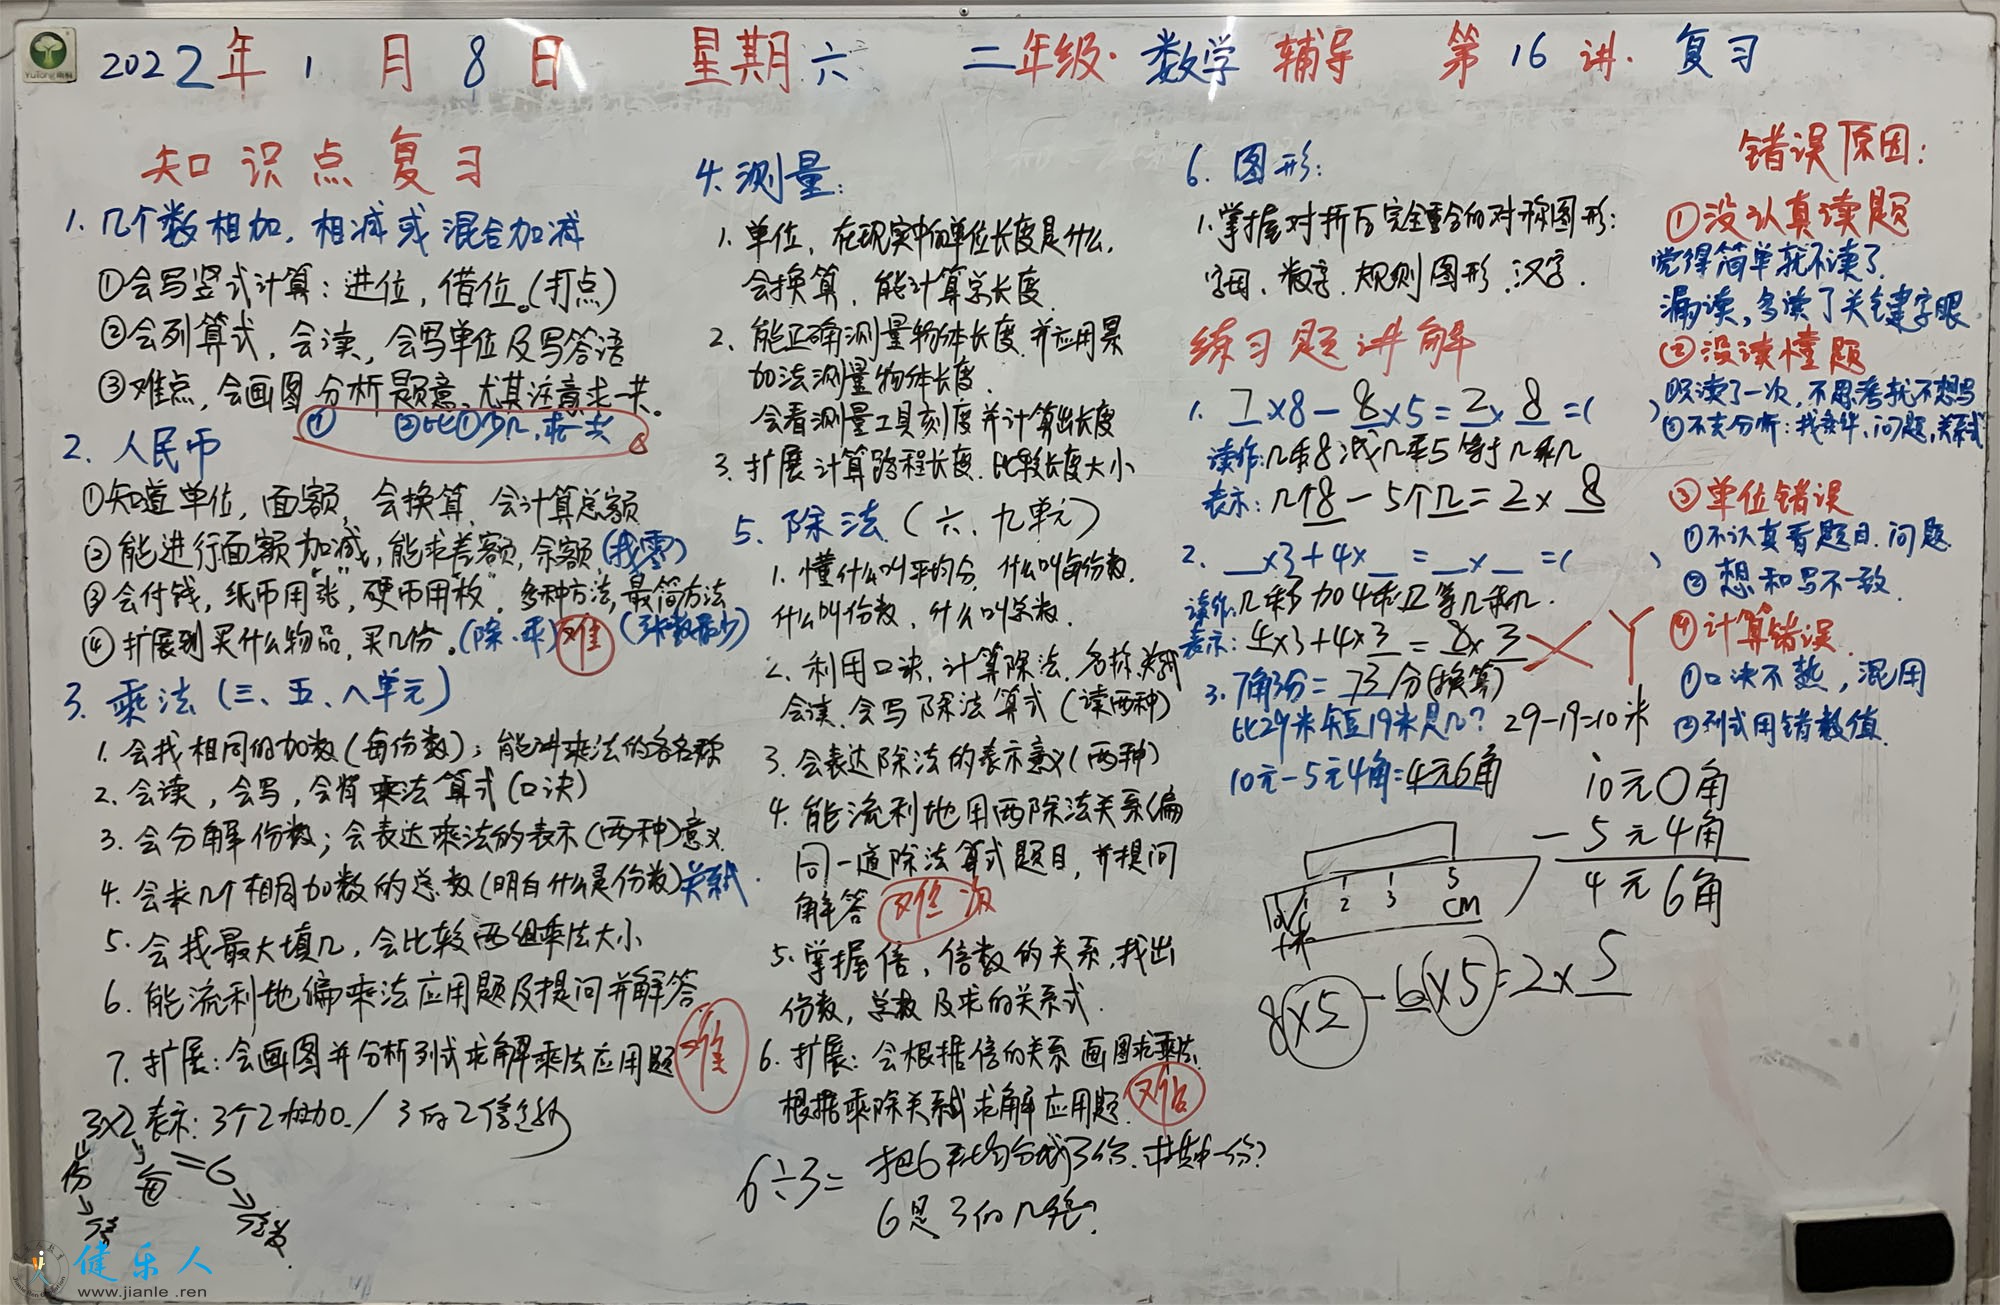 2022年1月8日 星期六 二年级·数学 辅导 第16讲·复习
知识点复习
1. 几个数相加,相减或混合加减
①会写竖式计算:进位,借位。(打点)
②会列算式,会读,会写单位及写答语
③难点,会画图分析题意,尤其注意求一共。
① ②比①少几,求一共
2. 人民币
①知道单位,面额,会换算,会计算总额
②能进行面额加减,能求差额,余额,(找零)
③会付钱,纸币用"张",硬币用"枚",多种方法,最简方法
(张数最少)
④扩展到买什么物品,买几份。(除·乘) 难
3. 乘法(三、五、八单元)
1. 会找相同的加数(每份数);能叫乘法的各名称
2. 会读,会写,会背乘法算式(口诀)
3. 会分解份数;会表达乘法的表示(两种)意义
4. 会求几个相同加数的总数(明白什么是份数)关系式
5. 会找最大填几,会比较两组乘法大小
6. 能流利地编乘法应用题及提问并解答
7. 扩展:会画图并分析列式求解乘法应用题 难
3×2表示:3个2相加 / 3的2倍是多少
份 每 =6
总数
4. 测量:
1. 单位,在现实中的单位长度是什么,
会换算,能计算总长度
2、能正确测量物体长度,并应用累
加法测量物体长度.
会看测量工具刻度并计算出长度
3. 扩展计算路程长度.比较长度大小
5. 除法(六、九单元)
1. 懂什么叫平均分,什么叫每份数,
什么叫份数,什么叫总数.
2. 利用口诀,计算除法.名称,关系式
会读.会写除法算式(读两种)
3. 会表达除法的表示意义(两种)
4. 能流利地用两除法关系编
同一道除法算式题目,并提问
解答 难
5. 掌握倍,倍数的关系,找出
份数,总数及求的关系式.
6. 扩展:会根据倍的关系画图求乘法,
根据乘除关系式求解应用题. 难
6÷3= 把6平均分成3份.求其中一份?
6是3的几倍?
6. 图形:
1. 掌握对折后完全重合的对称图形:
字母、数字、规则图形、汉字.
练习题讲解
1. 7×8-8×5=2×8=( )
读作:几乘8减几乘5等于几乘几
表示:几个8-5个几=2×8
2. __×3+4×__=__×__=( )
读作:几乘3加4乘几等几乘几.
表示:4×3+4×3=8×3
3. 7角3分=73分(换算)
比29米短19米是几? 29-19=10米
10元-5元4角=4元6角
10元0角
-5元4角
4元6角
2 3 5 cm
8×5-6×5=2×5
错误原因:
①没认真读题
觉得简单就不读了.
漏读,多读了关键字眼
②没读懂题
①只读了一次,不思考就不想写
②不去分析:找条件、问题,关系式
③单位错误
①不认真看题目.问题
②想和写不一致.
④计算错误.
①口决不熟,混用
②列式用错数值.
健乐人
www.jianle.ren